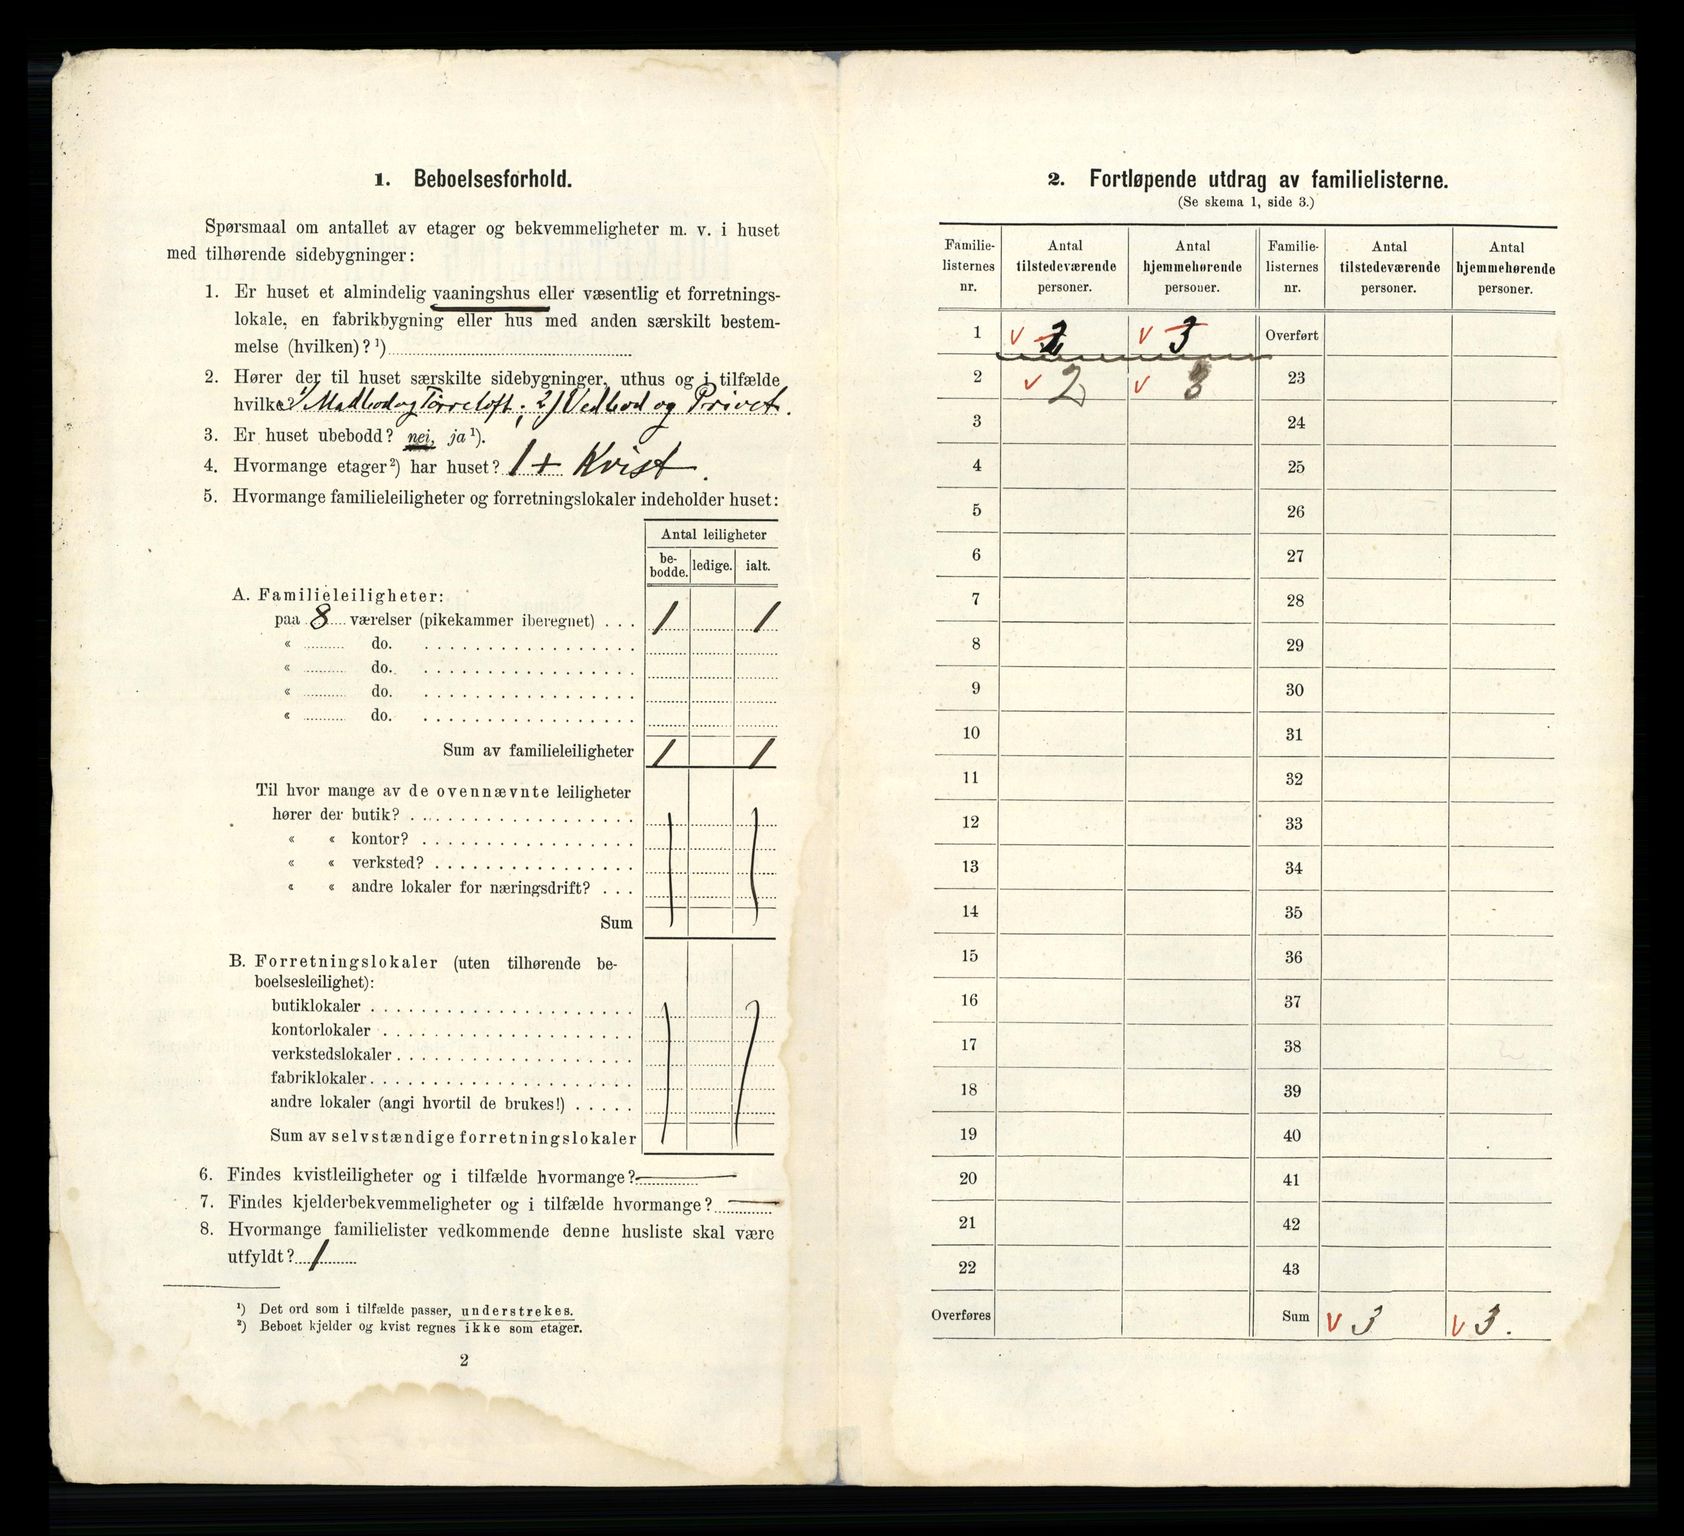 1. Beboelsesforhold.
Spørsmaal om antallet av etager og bekvemmeligheter m. v. i huset
med tilhørende sidebygninger:
1. Er huset et almindelig vaaningshus eller væsentlig et forretnings-
lokale, en fabrikbygning eller hus med anden særskilt bestem-
melse (hvilken)?¹)
2. Hører der til huset særskilte sidebygninger, uthus og i tilfælde
hvilke? 1/ Madbod og Tørreloft; 2) Vedbod og Privet.
3. Er huset ubebodd? nei, ja¹).
4. Hvormange etager²) har huset? 1 + Kvist.
5. Hvormange familieleiligheter og forretningslokaler indeholder huset:
Antal leiligheter
be-
bodde. ledige. ialt.
A. Familieleiligheter:
paa 8 værelser (pikekammer iberegnet) . . . 1 1
« do.
« do.
« do.
« do.
Sum av familieleiligheter 1 1
Til hvor mange av de ovennævnte leiligheter
hører der butik?
« « kontor?
« « verksted?
« « andre lokaler for næringsdrift?
Sum
B. Forretningslokaler (uten tilhørende be-
boelsesleilighet):
butiklokaler
kontorlokaler
verkstedslokaler
fabriklokaler
andre lokaler (angi hvortil de brukes!)
Sum av selvstændige forretningslokaler
6. Findes kvistleiligheter og i tilfælde hvormange? —
7. Findes kjelderbekvemmeligheter og i tilfælde hvormange? —
8. Hvormange familielister vedkommende denne husliste skal være
utfyldt? 1
¹) Det ord som i tilfælde passer, understrekes.
²) Beboet kjelder og kvist regnes ikke som etager.
2
2. Fortløpende utdrag av familielisterne.
(Se skema 1, side 3.)
Familie-
listernes
nr.
Antal
tilstedeværende
personer.
Antal
hjemmehørende
personer.
Familie-
listernes
nr.
Antal
tilstedeværende
personer.
Antal
hjemmehørende
personer.
1 v v 3 Overført
2 v 2 v 3 23
3 24
4 25
5 26
6 27
7 28
8 29
9 30
10 31
11 32
12 33
13 34
14 35
15 36
16 37
17 38
18 39
19 40
20 41
21 42
22 43
Overføres Sum v 3 v 3.